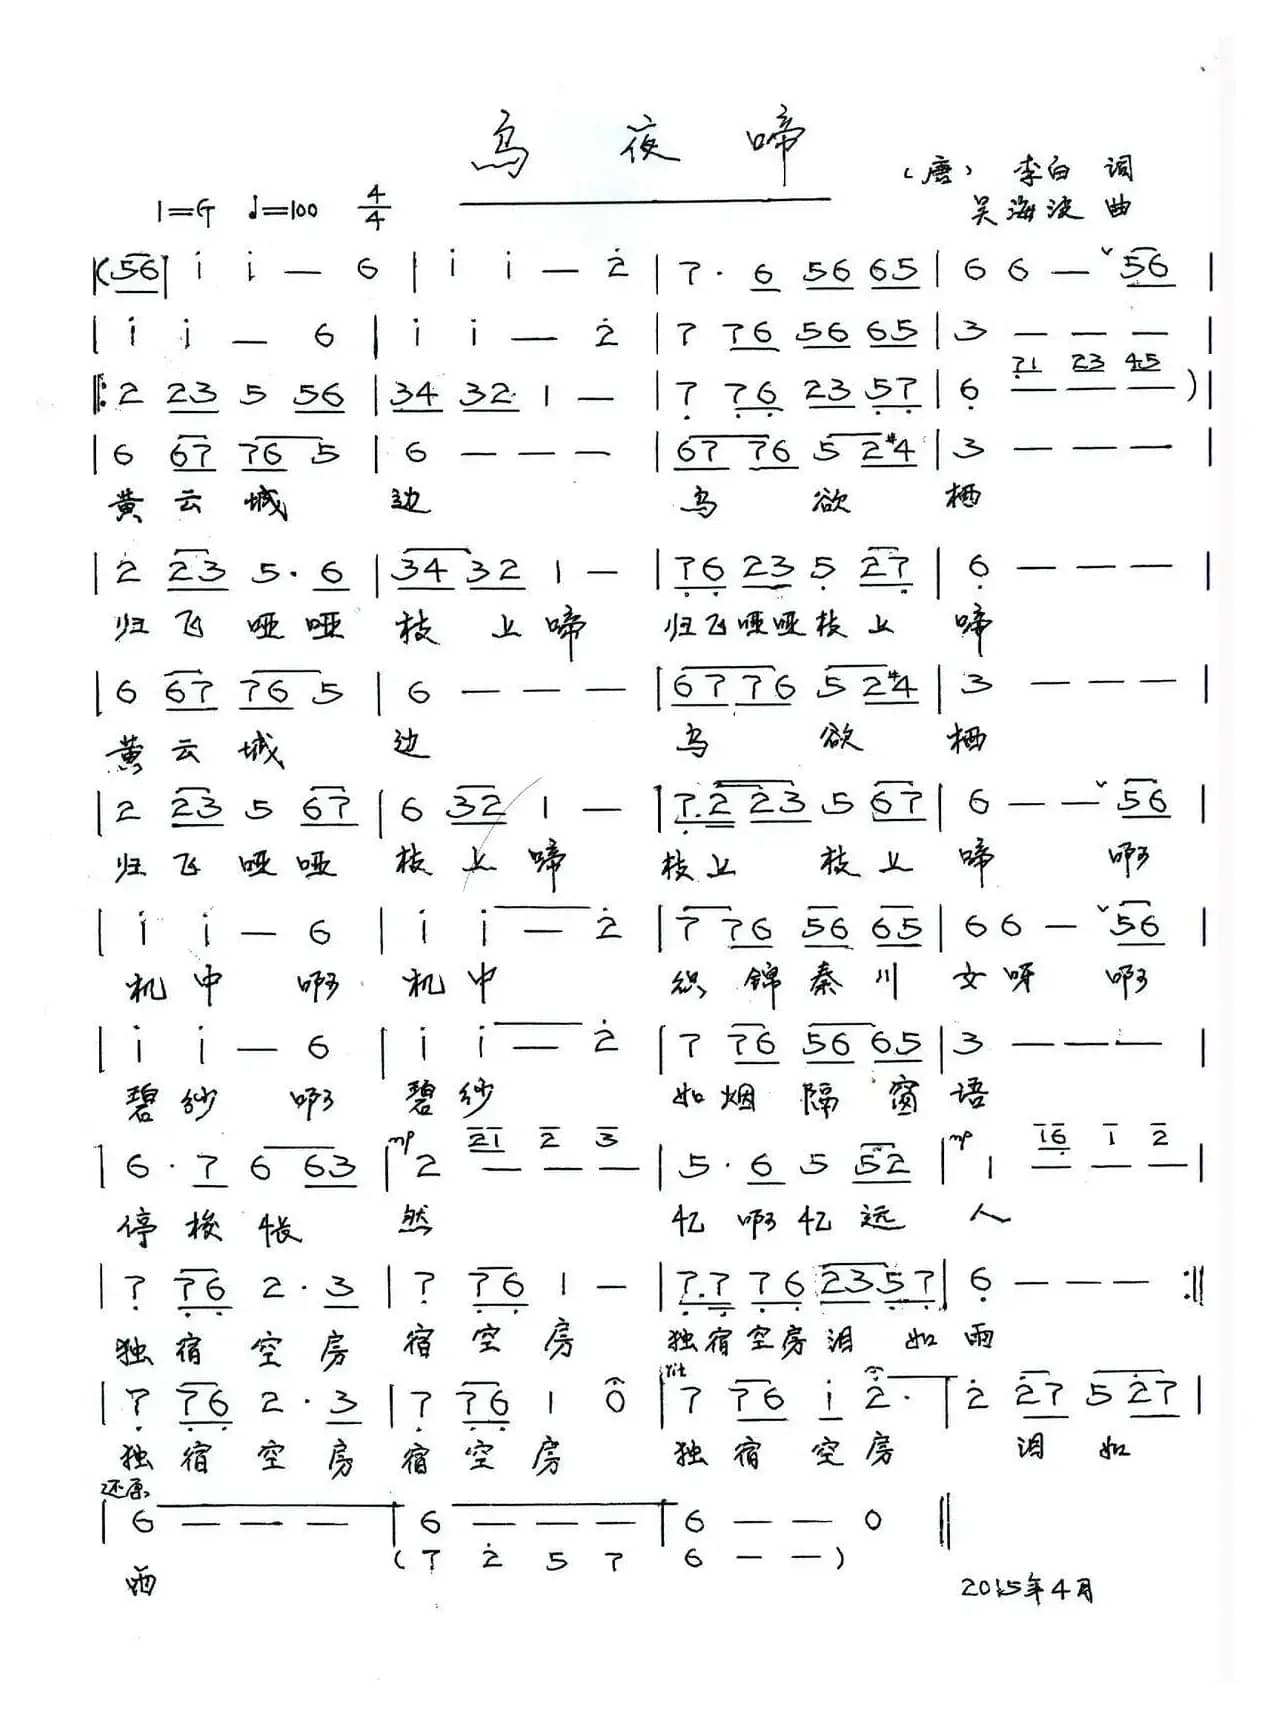 乌夜啼
(唐) 李白 词
1=G ♩=100 4/4
吴海波 曲
|(56| i i — 6 | i i — 2 | 7· 6 56 65 | 6 6 — ˅56 |
| i i — 6 | i i — 2 | 7 76 56 65 | 3 — — — |
71 23 45
|: 2 23 5 56 | 34 32 1 — | 7 76 23 57 | 6 — — — )|
| 6 67 76 5 | 6 — — — | 67 76 5 2#4 | 3 — — — |
黄云城 边 乌 欲 栖
| 2 23 5· 6 | 34 32 1 — | 76 23 5 27 | 6 — — — |
归飞哑哑 枝上啼 归飞哑哑枝上 啼
| 6 67 76 5 | 6 — — — | 67 76 5 2#4 | 3 — — — |
黄云城 边 乌 欲 栖
| 2 23 5 67 | 6 32 1 — | 7·2 23 5 67 | 6 — — ˅56 |
归飞哑哑 枝上啼 枝上 枝上 啼 啊
| i i — 6 | i i — 2 | 7 76 56 65 | 6 6 — ˅56 |
机中 啊 机中 织锦秦川 女呀 啊
| i i — 6 | i i — 2 | 7 76 56 65 | 3 — — — |
碧纱 啊 碧纱 如烟 隔窗 语
mp 21 2 3 mp 16 1 2
| 6· 7 6 63 | 2 — — — | 5· 6 5 52 | 1 — — — |
停梭怅 然 忆啊忆远 人
| 7 76 2· 3 | 7 76 1 — | 7·7 76 23 57 | 6 — — — :||
独宿空房 宿空房 独宿空房泪 如雨
rit
| 7 76 2· 3 | 7 76 1 0 | 7 76 i 2· | 2 27 5 27 |
独宿空房 宿空房 独宿空房 泪 如
还原
| 6 — — — | 6 — — — | 6 — — 0 ||
(7 2 5 7 6 — —)
雨
2015年4月